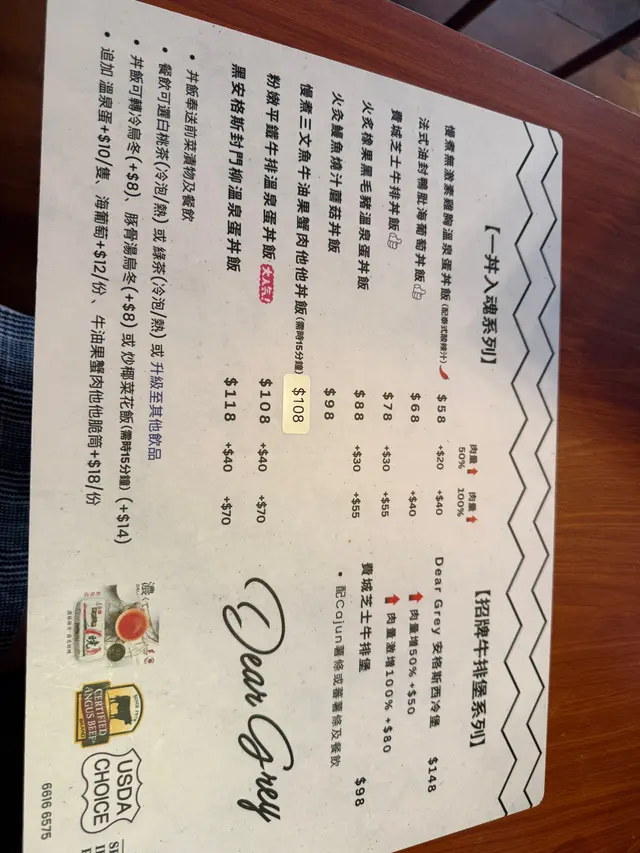 【一丼入魂系列】
肉量⬆ 50% 肉量⬆ 100%
慢煮無激素雞胸溫泉蛋丼飯(配泰式酸辣汁) $58 +$20 +$40
法式油封鴨髀海葡萄丼飯 $68 +$40
費城芝士牛排丼飯 $78 +$30 +$55
火炙橡果黑毛豬溫泉蛋丼飯 $88 +$30 +$55
火炙鰻魚燒汁蘑菇丼飯 $98
慢煮三文魚牛油果蟹肉他他丼飯(需時15分鐘) $108
粉嫩平鐵牛排溫泉蛋丼飯 大人氣! $108 +$40 +$70
黑安格斯封門柳溫泉蛋丼飯 $118 +$40 +$70
• 丼飯奉送前菜漬物及餐飲
• 餐飲可選白桃茶(冷泡/熱) 或 綠茶(冷泡/熱) 或 升級至其他飲品
• 丼飯可轉冷烏冬(+$8)、豚骨湯烏冬(+$8) 或 炒椰菜花飯(需時15分鐘) (+$14)
• 追加 溫泉蛋+$10/隻、海葡萄+$12/份、牛油果蟹肉他他脆筒+$18/份
【招牌牛排堡系列】
Dear Grey 安格斯西冷堡 $148
⬆ 肉量增50% +$50
⬆ 肉量激增100% +$80
費城芝士牛排堡 $98
• 配Cajun薯條或蕃薯條及餐飲
Dear Grey
CERTIFIED
ANGUS BEEF
USDA
CHOICE
6616 6575